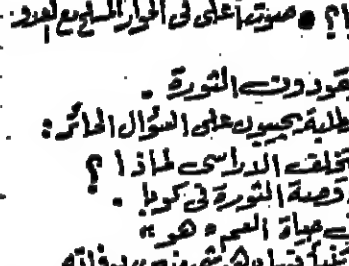 ؟! • صوتنا أعلى في الحوار المسلح مع العدو.
يقودون الثورة.
طلبة يجيبون على السؤال الحائر:
تخلف الدراسي لماذا؟
قصة الثورة في كوبا.
حياة العمر «هو»